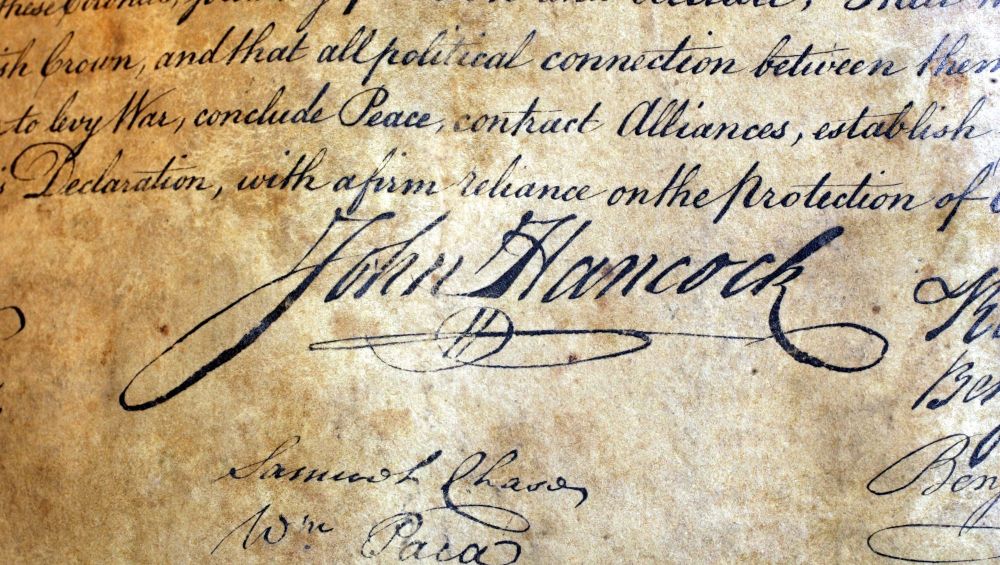 these Colonies,
sh Crown, and that all political connection between them
to levy War, conclude Peace, contract Alliances, establish
Declaration, with a firm reliance on the Protection of
John Hancock
Samuel Chase
Wm Paca
Ben
Benj